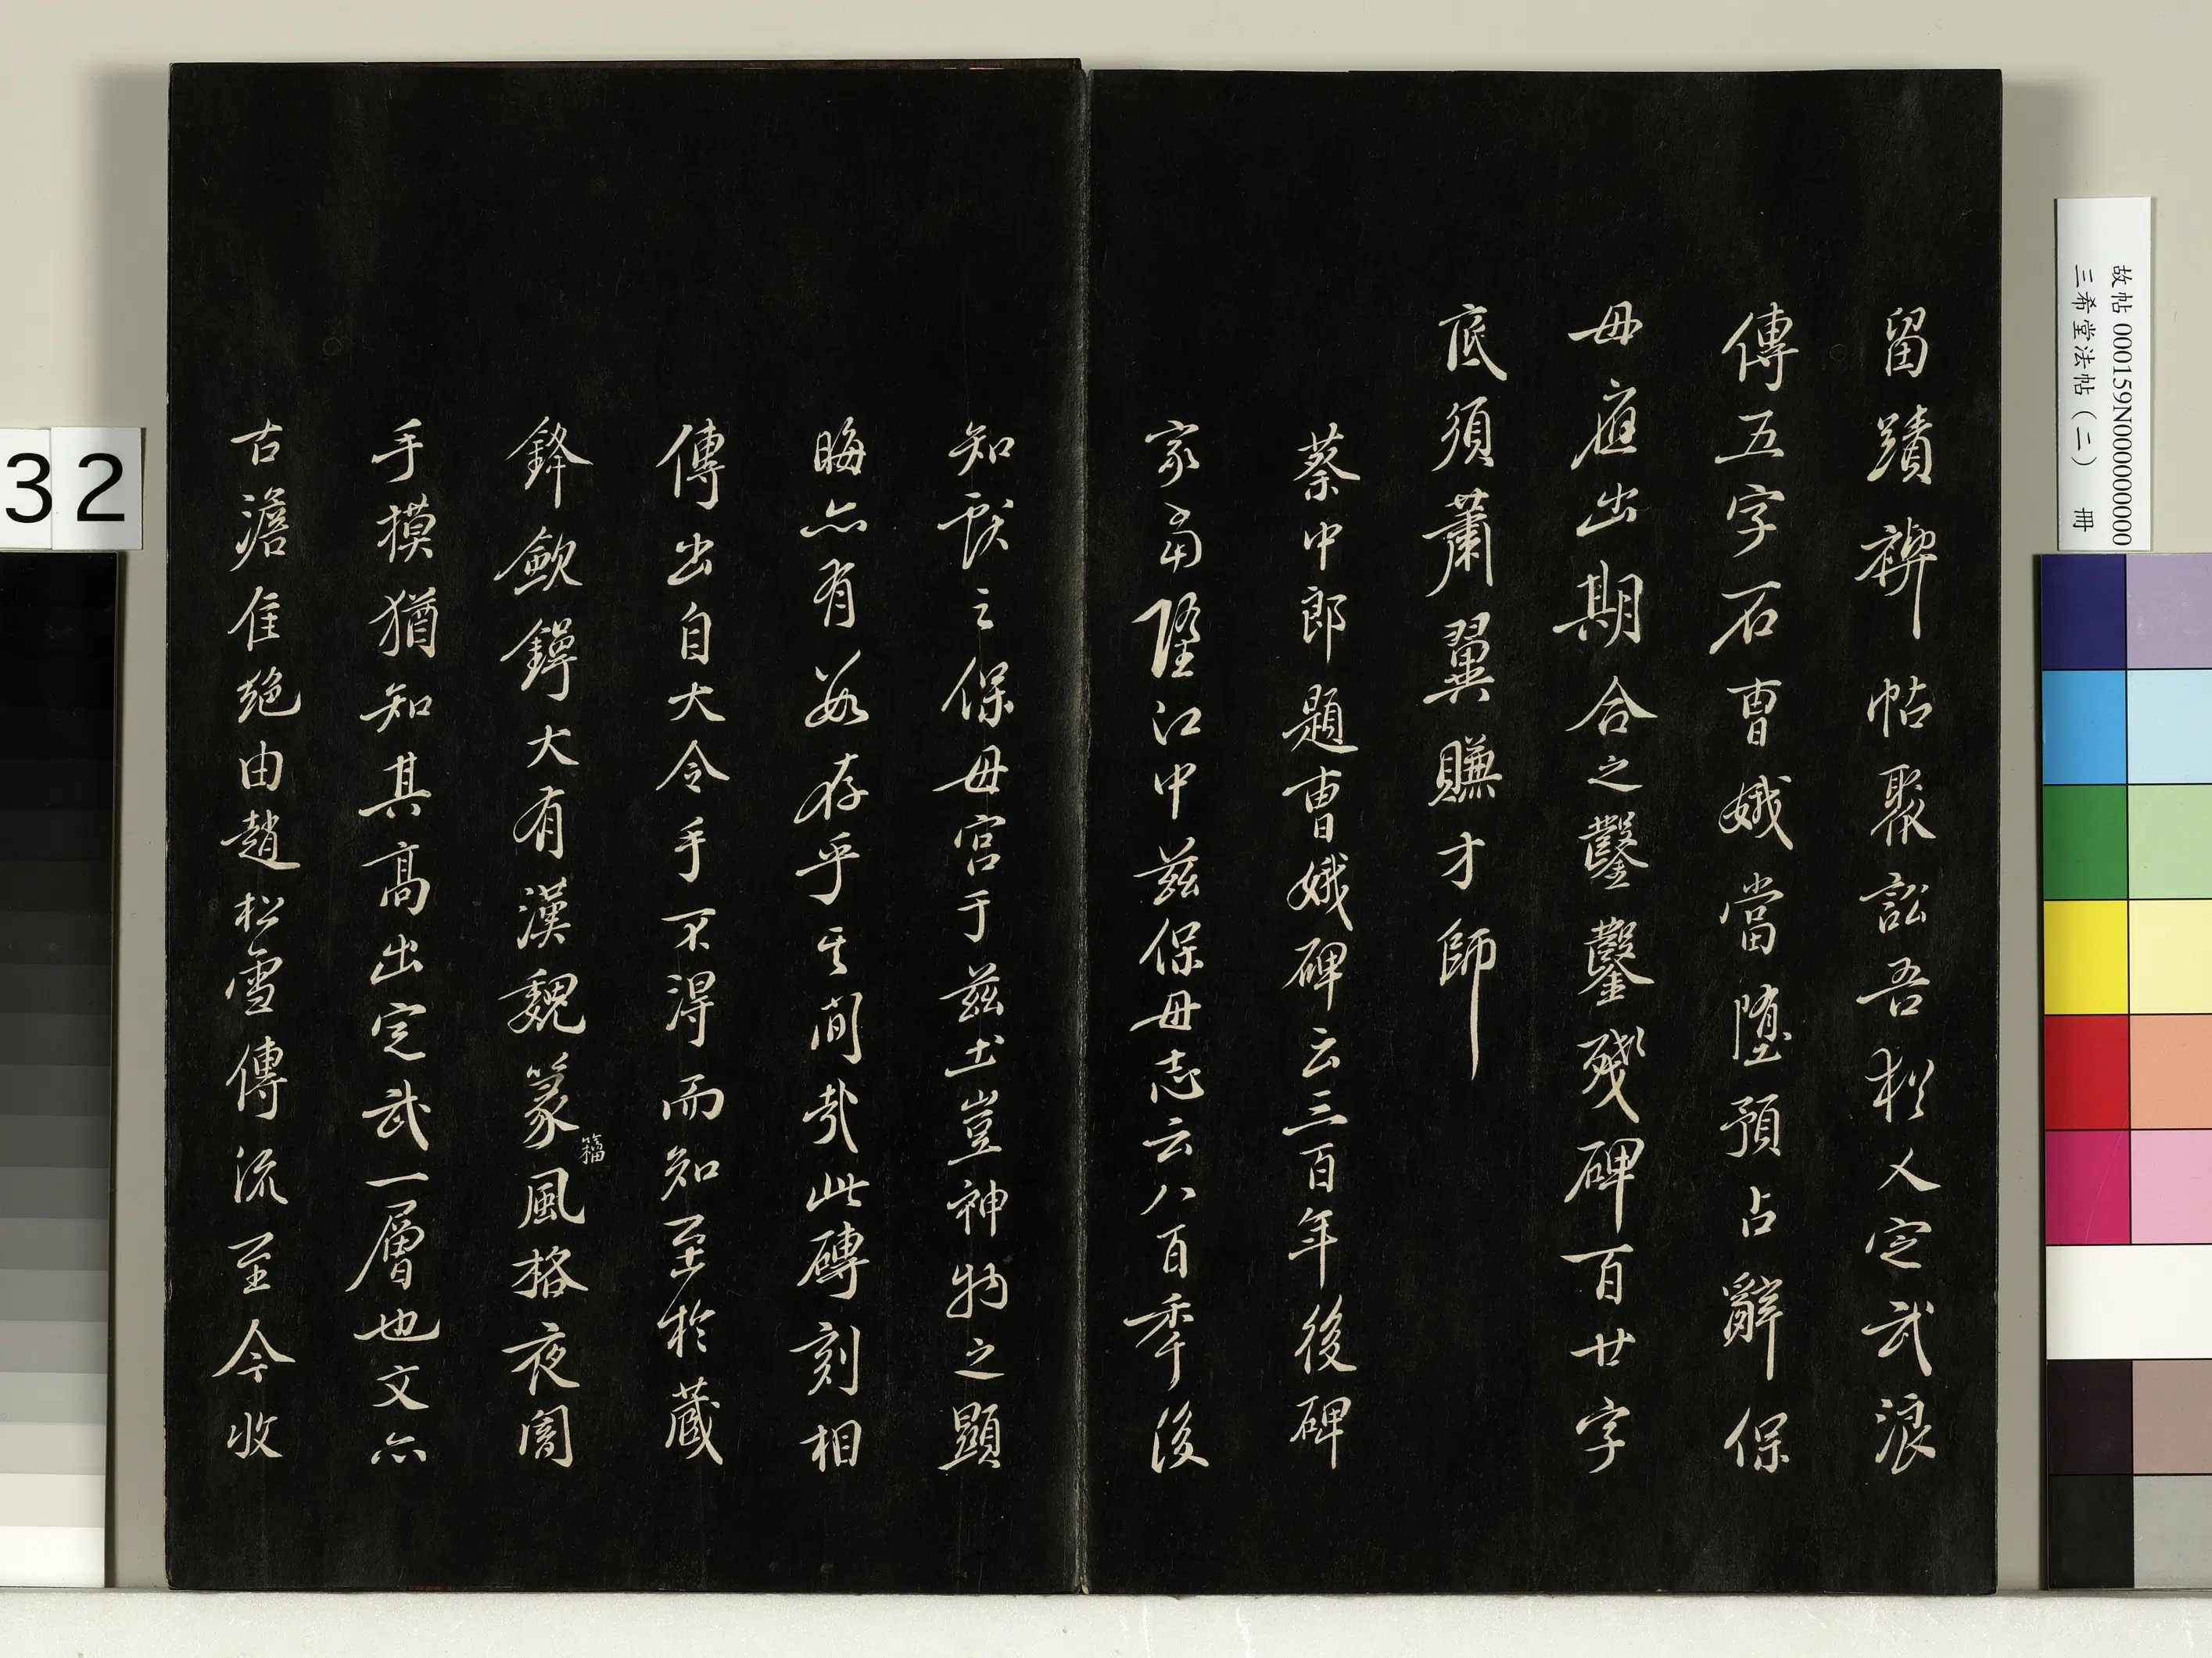 留蹟禊帖聚訟吾於人定武浪
傳五字石曹娥當墮預占辭保
母應出期合之鑿鑿殘碑百廿字
底須蕭翼賺才師
蔡中郎題曹娥碑云三百年後碑
家當墮江中茲保母志云八百季後
知獻之保母宮于茲土豈神物之顯
晦亦有數存乎其間哉此磚刻相
傳出自大令手不得而知至於藏
鋒歛鍔大有漢魏篆籀風格夜闇
手摸猶知其高出定武一層也文亦
古澹隹絶由趙松雪傳流至今收
故帖 000159N000000000
三希堂法帖（二） 冊
32